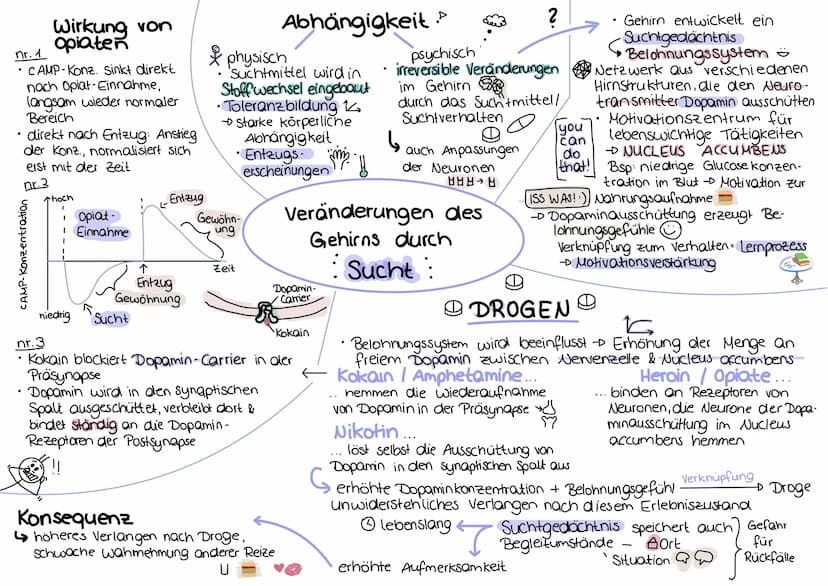 Wirkung von
Opiaten
nr. 1
• cAMP-Konz. sinkt direkt
nach Opiat-Einnahme,
langsam wieder normaler
Bereich
• direkt nach Entzug: Anstieg
der Konz., normalisiert sich
erst mit der Zeit
nr. 2
cAMP-Konzentration
hoch
niedrig
Opiat-
Einnahme
Entzug
Gewöhn-
ung
Zeit
Entzug
Gewöhnung
Sucht
Dopamin-
Carrier
Kokain
nr. 3
• Kokain blockiert Dopamin-Carrier in der
Präsynapse
• Dopamin wird in den synaptischen
Spalt ausgeschüttet, verbleibt dort &
bindet ständig an die Dopamin-
Rezeptoren der Postsynapse
!!
Abhängigkeit
physisch
• Suchtmittel wird in
Stoffwechsel eingebaut
• Toleranzbildung
→ starke körperliche
Abhängigkeit
• Entzugs-
erscheinungen
psychisch
• irreversible Veränderungen
im Gehirn
durch das Suchtmittel/
Suchtverhalten
↳ auch Anpassungen
der Neuronen
?
• Gehirn entwickelt ein
Suchtgedächtnis
↳ Belohnungssystem
Netzwerk aus verschiedenen
Hirnstrukturen, die den Neuro-
transmitter Dopamin ausschütten
• Motivationszentrum für
lebenswichtige Tätigkeiten
→ NUCLEUS ACCUMBENS
you
can
do
that!
Bsp: niedrige Glucosekonzen-
tration im Blut → Motivation zur
Nahrungsaufnahme
ISS WAS! :)
→ Dopaminausschüttung erzeugt Be-
lohnungsgefühle
Verknüpfung zum Verhalten: Lernprozess
→ Motivationsverstärkung
Veränderungen des
Gehirns durch
: Sucht :
DROGEN
• Belohnungssystem wird beeinflusst → Erhöhung der Menge an
freiem Dopamin zwischen Nervenzelle & Nucleus accumbens
Kokain / Amphetamine ...
... hemmen die Wiederaufnahme
von Dopamin in der Präsynapse
Heroin / Opiate ...
... binden an Rezeptoren von
Neuronen, die Neurone der Dopa-
minausschüttung im Nucleus
accumbens hemmen
Nikotin ...
... löst selbst die Ausschüttung von
Dopamin in den synaptischen Spalt aus
erhöhte Dopaminkonzentration + Belohnungsgefühl Verknüpfung → Droge
unwiderstehliches Verlangen nach diesem Erlebniszustand
lebenslang
Suchtgedächtnis speichert auch
Begleitumstände – Ort
Situation
Gefahr
für
Rückfälle
erhöhte Aufmerksamkeit
Konsequenz
↳ höheres Verlangen nach Droge,
schwache Wahrnehmung anderer Reize